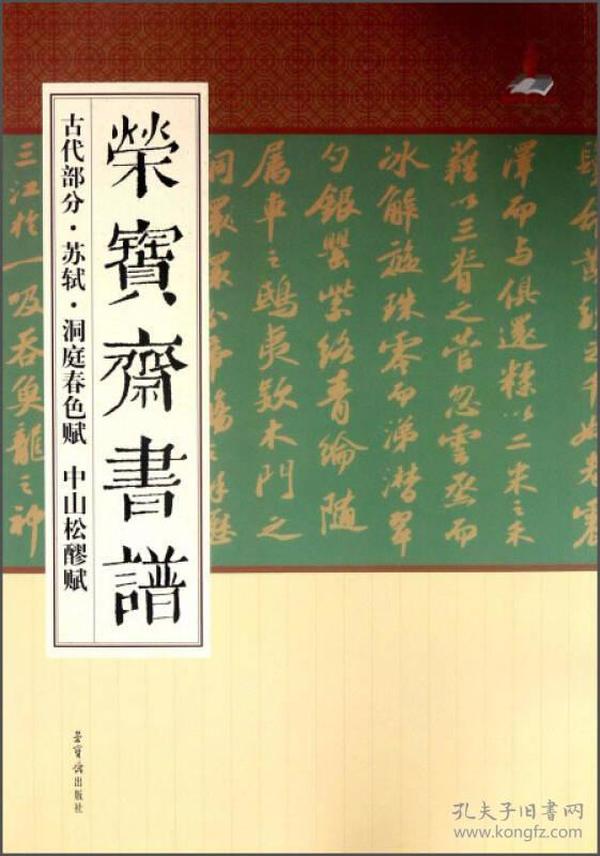 榮寶齋書譜
古代部分·苏轼·洞庭春色赋 中山松醪赋
澤而与俱還糅以二米之禾
藉以三脊之菅忽雲烝而
冰解旋珠零而涕潸翠
勺銀罌紫絡青綸隨
属車之鴟夷欵木門之
三江於一吸吞魚龍之神
荣宝斋出版社
孔夫子旧书网
www.kongfz.com